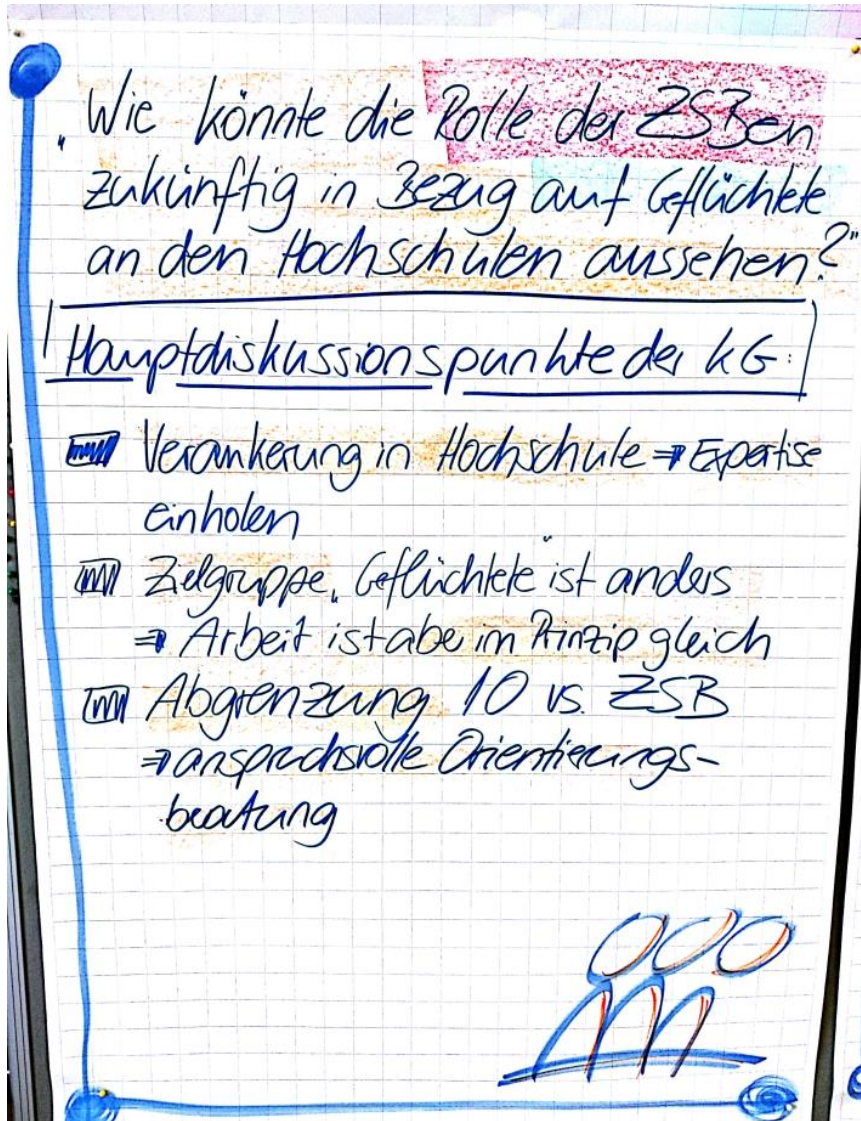 „Wie könnte die Rolle der ZSBen
zukünftig in Bezug auf Geflüchtete
an den Hochschulen aussehen?"
Hauptdiskussionspunkte der KG:
Verankerung in Hochschule ⇒ Expertise
einholen
Zielgruppe „Geflüchtete" ist anders
⇒ Arbeit ist aber im Prinzip gleich
Abgrenzung IO vs. ZSB
⇒ anspruchsvolle Orientierungs-
beratung